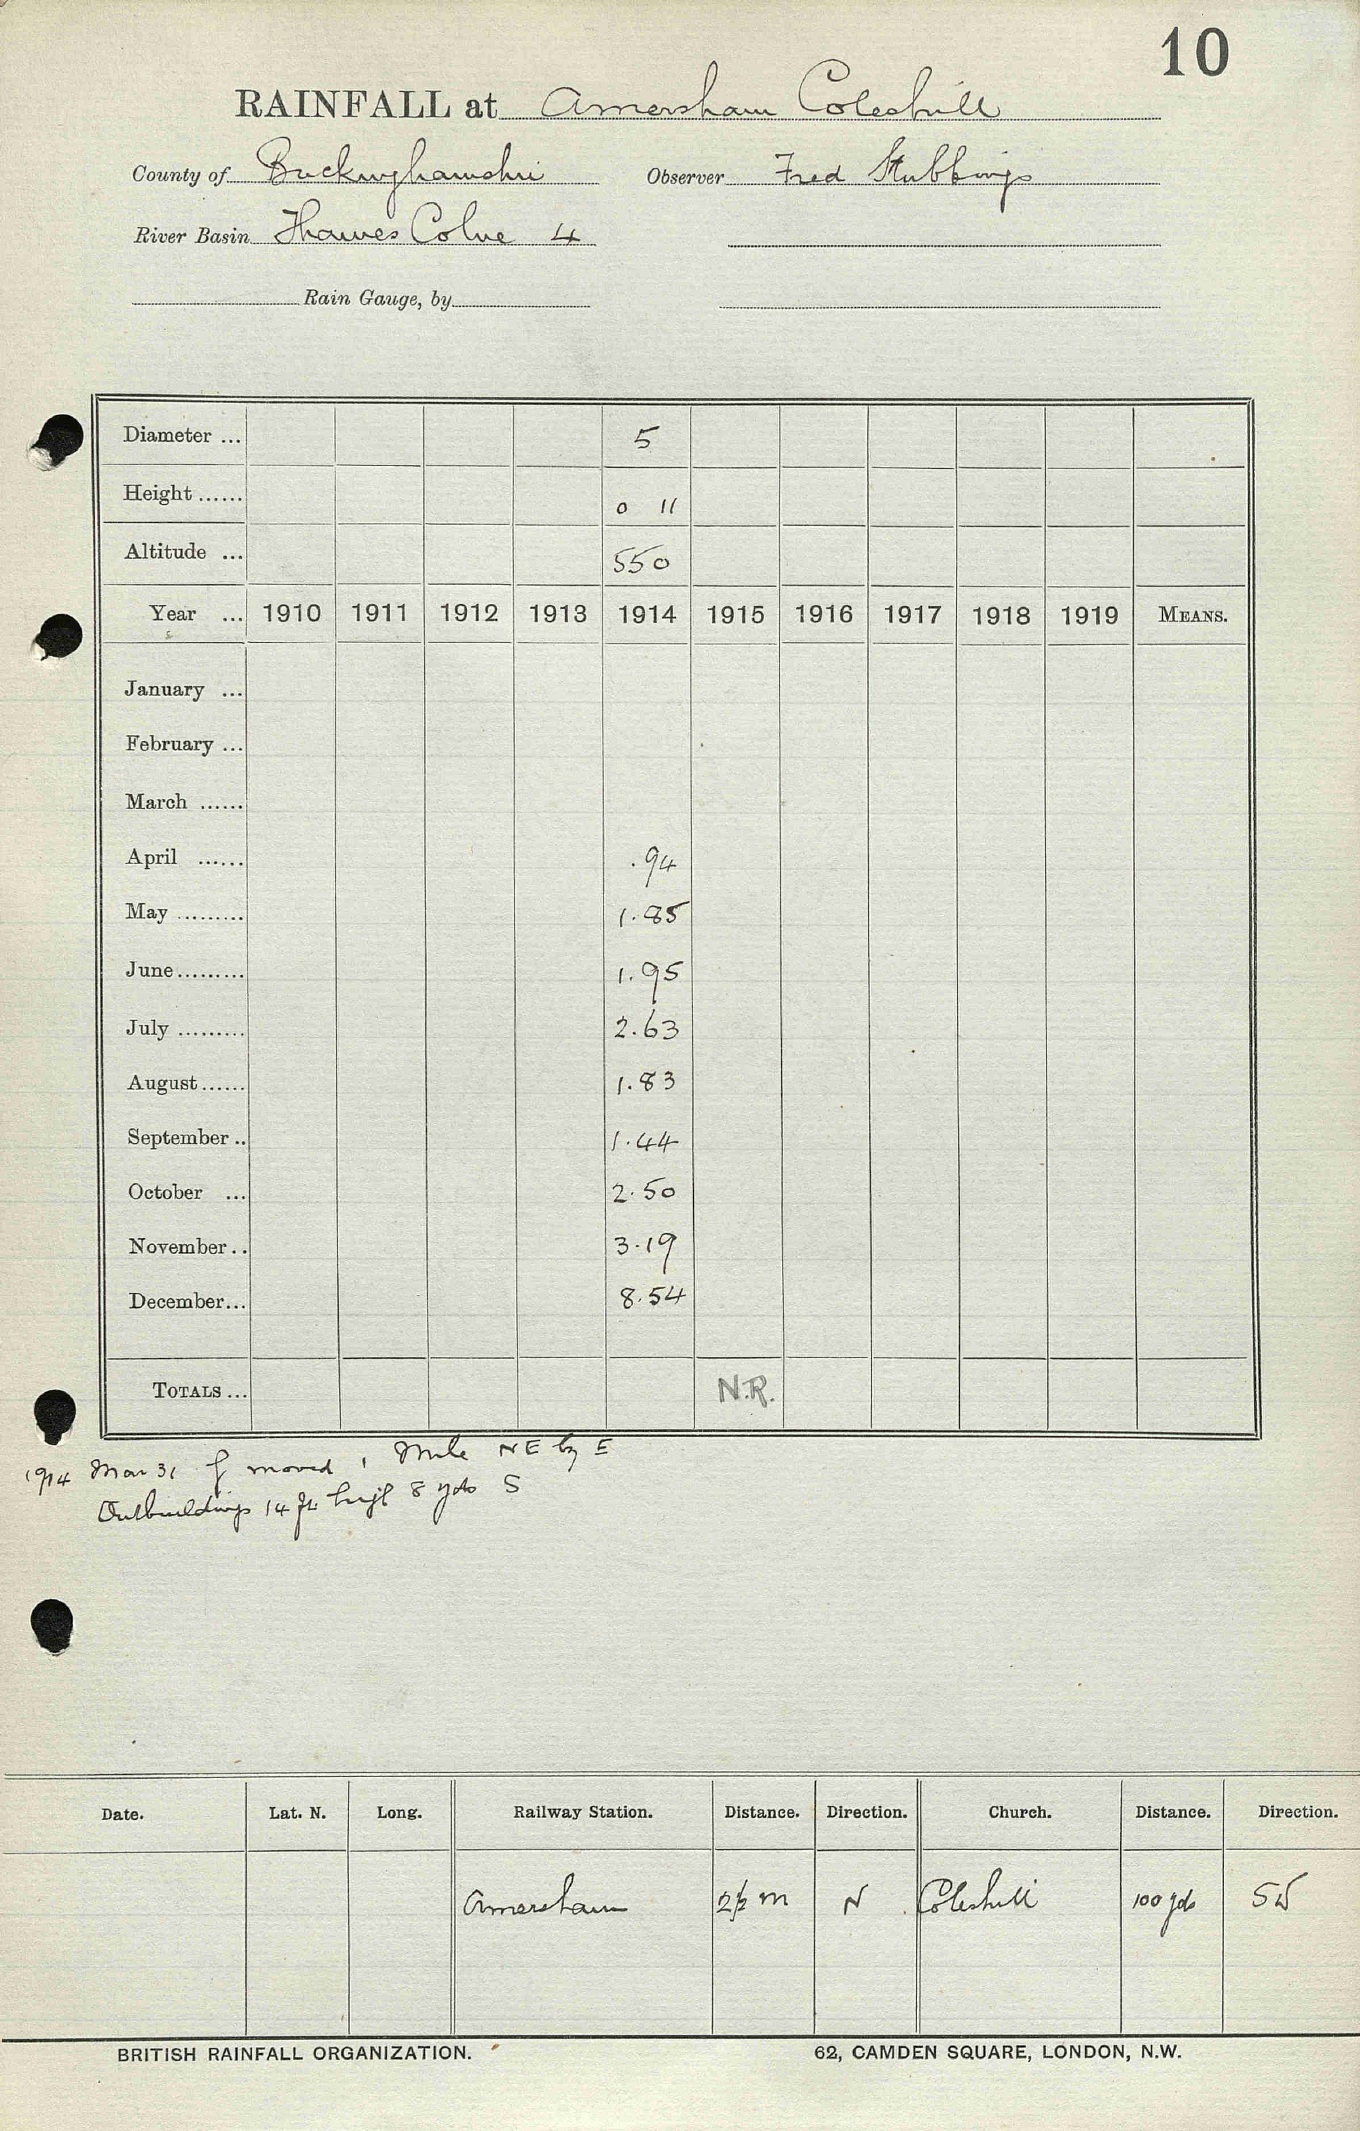 10
RAINFALL at Amersham Coleshill
County of Buckinghamshire Observer Fred Stubbings
River Basin Thames Colne 4
Rain Gauge, by
Diameter ... 5
Height ...... 0 11
Altitude ... 550
Year ... 1910 1911 1912 1913 1914 1915 1916 1917 1918 1919 MEANS.
January ...
February ...
March ......
April ...... .94
May ......... 1.85
June ......... 1.95
July ......... 2.63
August ...... 1.83
September .. 1.44
October ... 2.50
November .. 3.19
December ... 8.54
TOTALS ... N.R.
1914 Mar 31 moved 1 Mile NE by E
Outbuildings 14 ft high 8 yds S
Date. Lat. N. Long. Railway Station. Distance. Direction. Church. Distance. Direction.
Amersham 2½ m N Coleshill 100 yds SW
BRITISH RAINFALL ORGANIZATION. 62, CAMDEN SQUARE, LONDON, N.W.